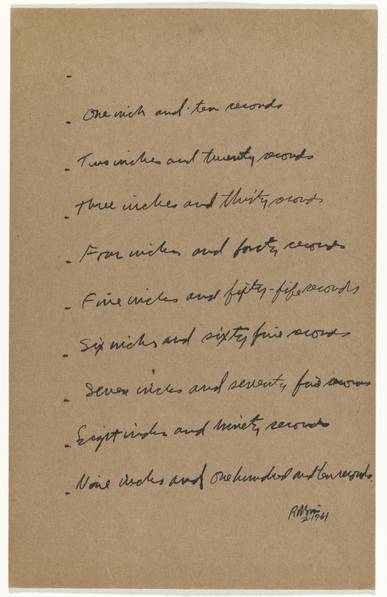 - One inch and ten seconds
- Two inches and twenty seconds
- Three inches and thirty seconds
- Four inches and forty seconds
- Five inches and fifty-fife seconds
- Six inches and sixty five seconds
- Seven inches and seventy five seconds
- Eight inches and ninety seconds
- Nine inches and one hundred and ten seconds.
R Morris
2/961